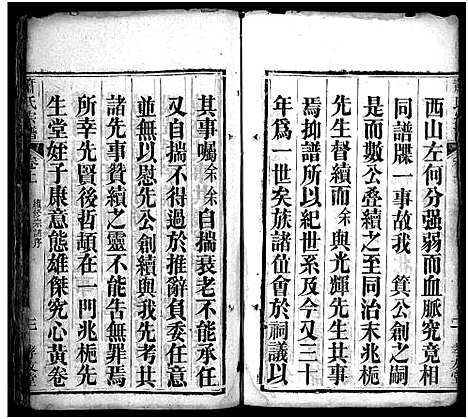 西山左何分强弱而血脈究竟相
同譜牒一事故我 箕公創之嗣
是而敷公叠續之至同治末兆梔
先生督續而余與光輝先生共事
焉抑譜所以紀世系及今又三十
年爲一世矣族諸位會於祠議以
其事囑余余自揣衰老不能承任
又自揣不得過於推辭負委任意
並無以慰先公創續與我先考其
諸先事賛續之靈不能告無罪焉
所幸先賢後哲頡在一門兆梔先
生堂姪子康意態雄傑究心黃卷
蕭氏宗譜
續修宗譜序